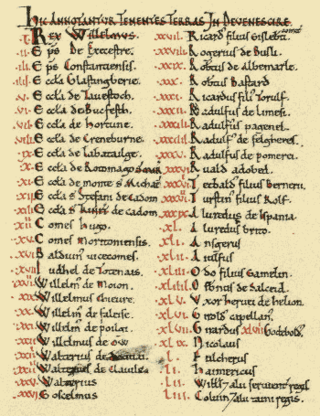 HIC ANNOTANTUR TENENTES TERRAS IN DEVENESCIRE
REX Willelmus.
.II. Eps De Execestre.
.III. Eps Constantiensis.
Eccla Glastingberie.
.V. Eccla de Tauestoch.
.VI. Eccla de Bucfesth.
.VII. Eccla de hortune.
.VIII. Eccla de Creneburne.
.IX. Eccla de Labatailge.
.X. Eccla de Rotomago
.XI. Eccla de monte S Michael
.XII. Eccla S Stefani de Cadom
.XIII. Eccla S de cadom
.XIIII. Comes hugo.
.XV. Comes moritoniensis.
.XVI. Balduin uicecomes.
.XVII. Iudhel de Totenais.
Willelm de moion.
Willelmus cheure.
Willelm de faleise.
Willelm de poilai.
Willelmus de ow
Walterius de
Walterius de Clauile
Walterius
Goscelmus
.XXVII. Ricard filius Gisleberti.
.XXVIII. Rogerius de Busli.
.XXIX. Robtus de Albemarle.
.XXX. Robtus Bastard
.XXXI. Ricardus filius Torulf.
.XXXII. Radulfus de limesi.
.XXXIII. Radulfus pagenel.
Radulf de felgheres.
.XXXV. Radulfus de pomerei.
Ruald adobed.
Tetbald filius Bernerii.
Turstin filius Rolf.
Aluredus de ispania
.XL. Aluredus brito.
.XLI. Ansgerus
Aiulfus
.XLIII. Odo filius Gamelin.
.XLIIII. Osbnus de Salceid.
.XLV. Vxor heruei de helion.
.XLVI. Girold capellan.
.XLVII. Girardus XLVIII Godebold.
Nicolaus
.L. Fulcherus
.LI. haimericus
.LII. Willi 7 alii seruientes regis
.LIII. Coluin 7 alii taini regis.